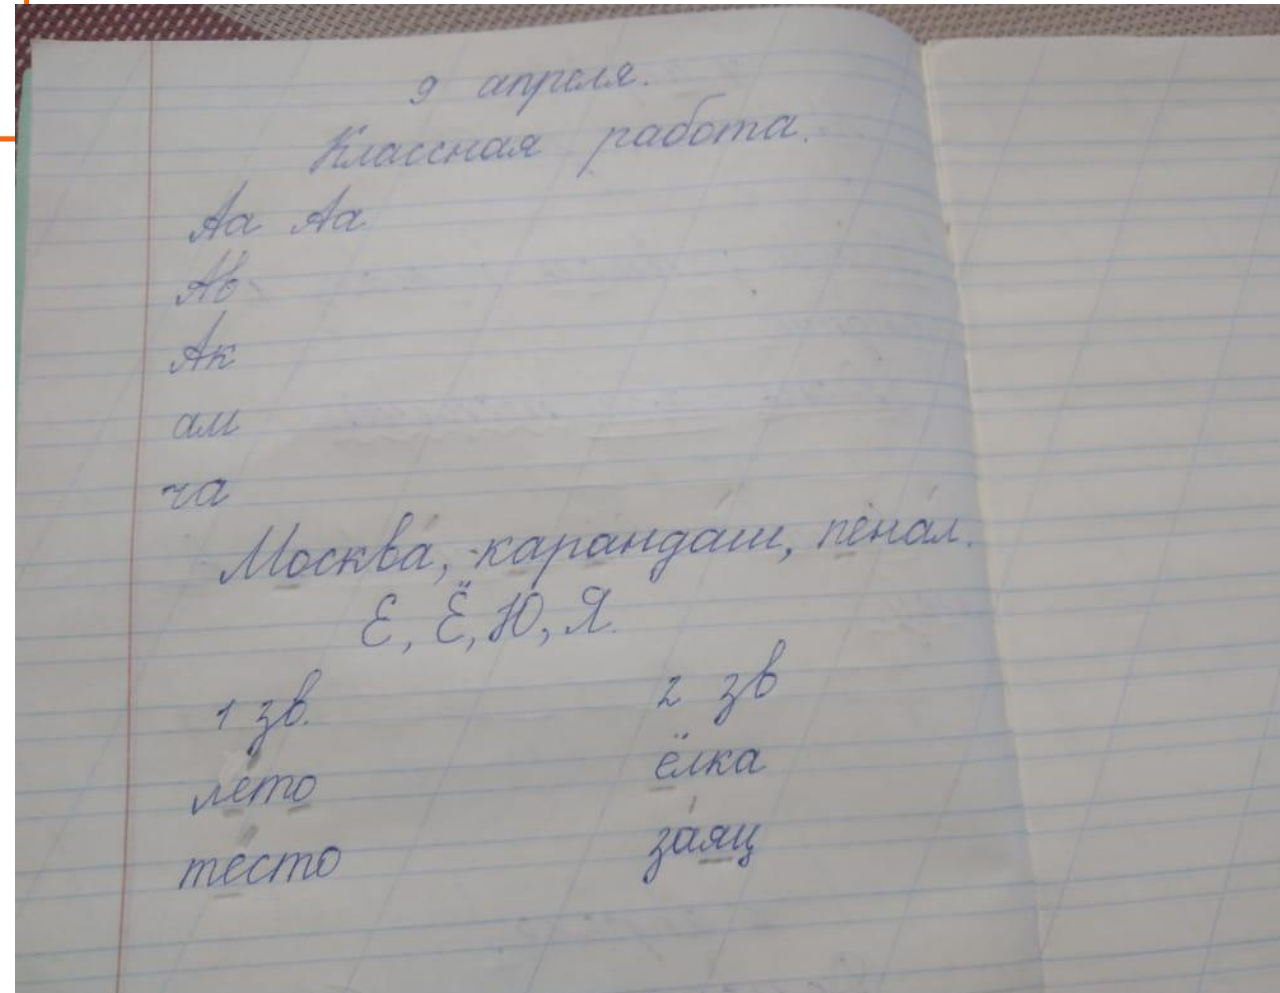 9 апреля.
Классная работа.
Аа Аа
Ав
Ак
ам
ча
Москва́, каранда́ш, пена́л.
Е, Ё, Ю, Я.
1 зв. 2 зв
ле́то ёлка
те́сто за́яц